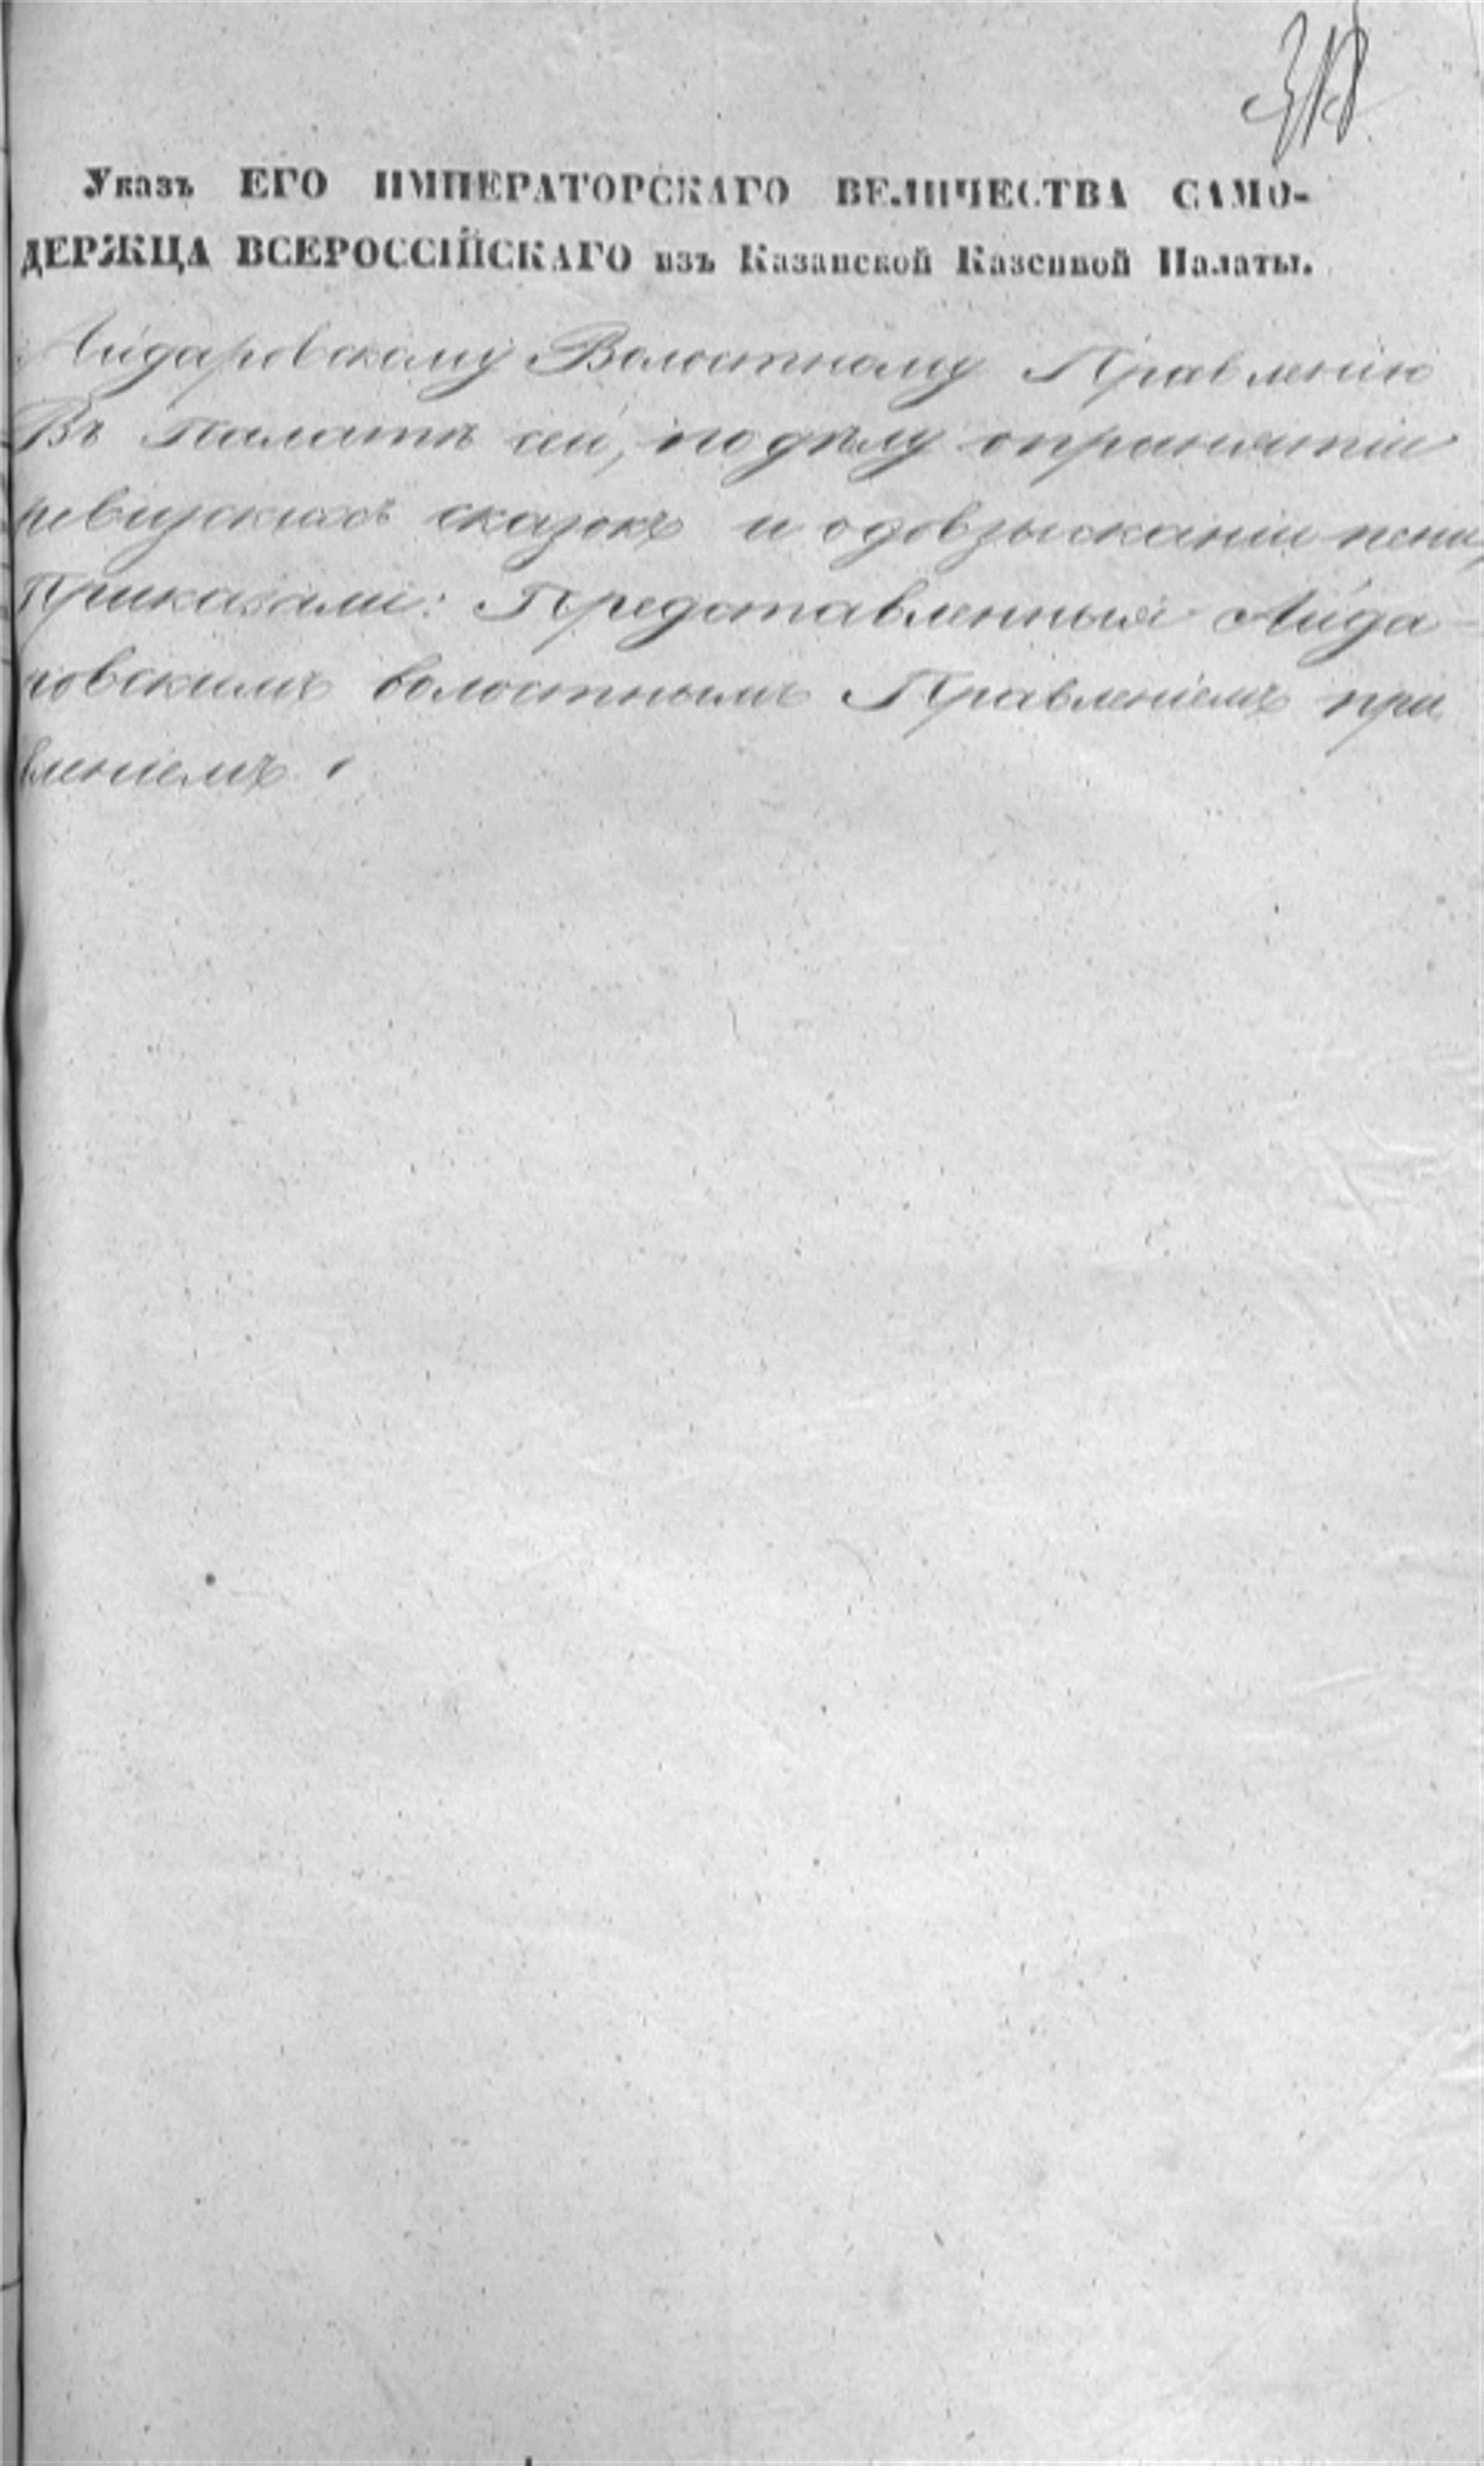 Указъ ЕГО ИМПЕРАТОРСКАГО ВЕЛИЧЕСТВА САМО-
ДЕРЖЦА ВСЕРОССІЙСКАГО изъ Казанской Казенной Палаты.
Айдаровскому Волостному Правленію
Въ Палатѣ сей, по дѣлу о принятіи
ревизскихъ сказокъ и о довзысканіи пени,
Приказали: Представленныя Айда-
ровскимъ волостнымъ Правленіемъ при
вленіемъ